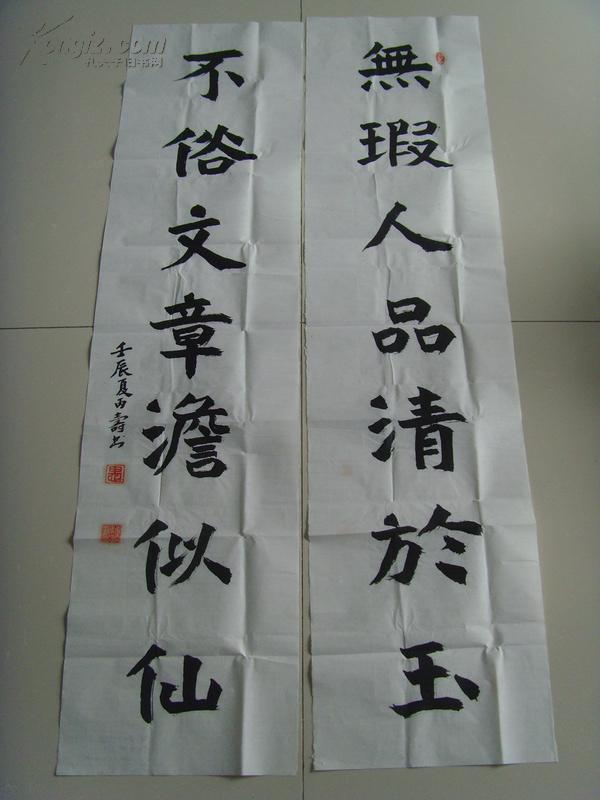 無瑕人品清於玉
不俗文章澹似仙
壬辰夏丙壽书
Kongfz.com
孔夫子旧书网